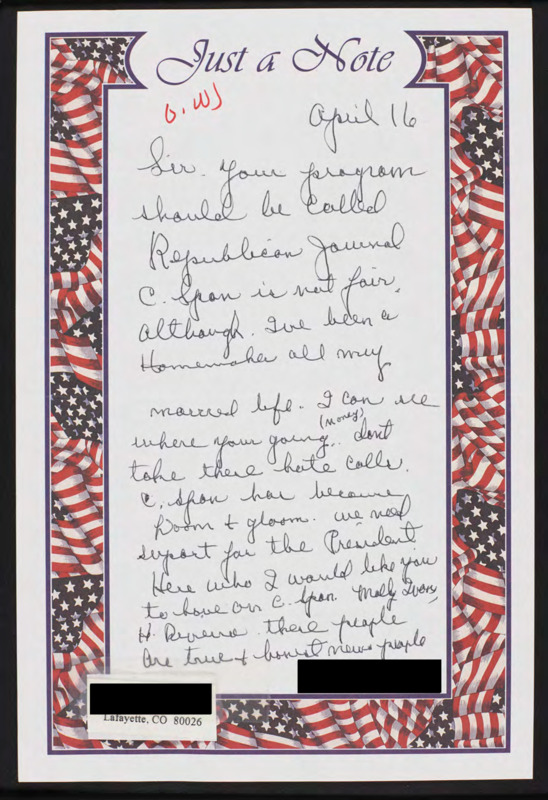 Just a Note
G. WJ
April 16
Sir. Your program
should be called
Republican Journal
C. Span is not fair.
although. I've been a
Homemaker all my
married life. I can see
(money)
where your going. don't
take there hate calls.
C. Span has become
Doom & gloom. we need
support for the President
Here who I would like you
to have on C. Span. Molly Ivans,
H. there people
are true & honest news people
Lafayette, CO 80026